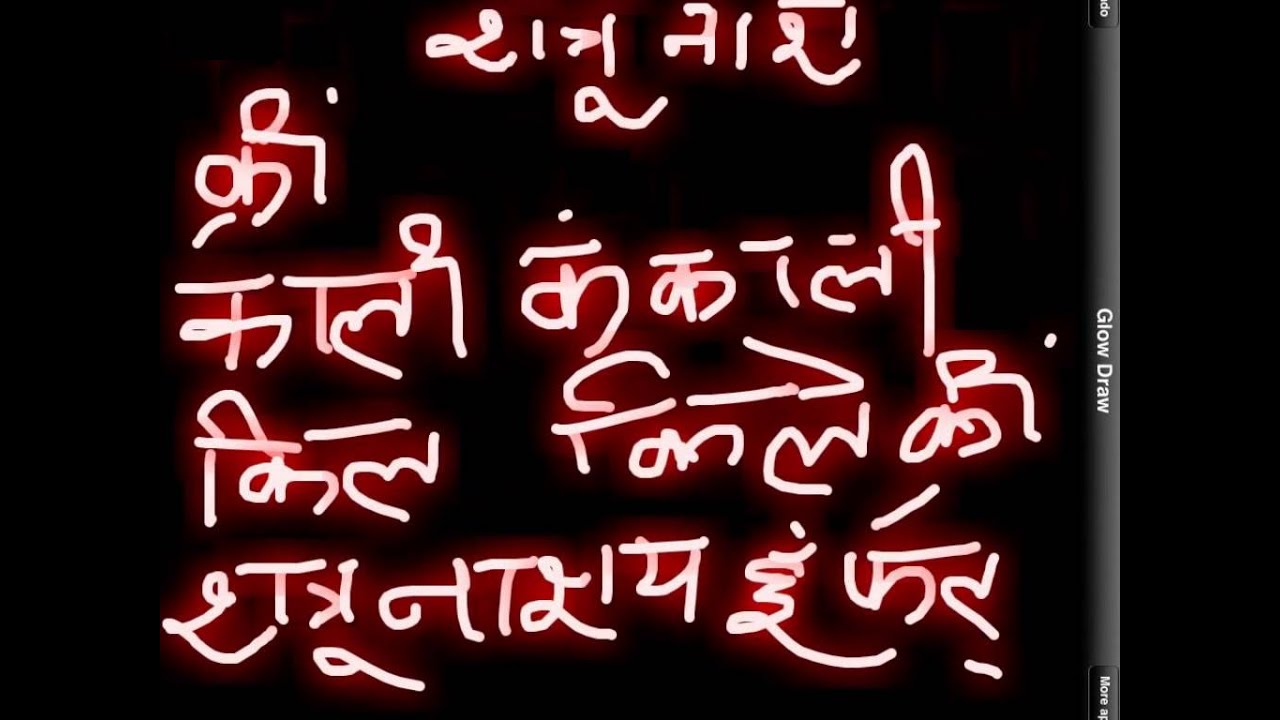 शत्रू नाश
क्रीं
काली कंकाली
किल किले क्रीं
शत्रू नाशय हुं फट्
ndo
Glow Draw
More ap